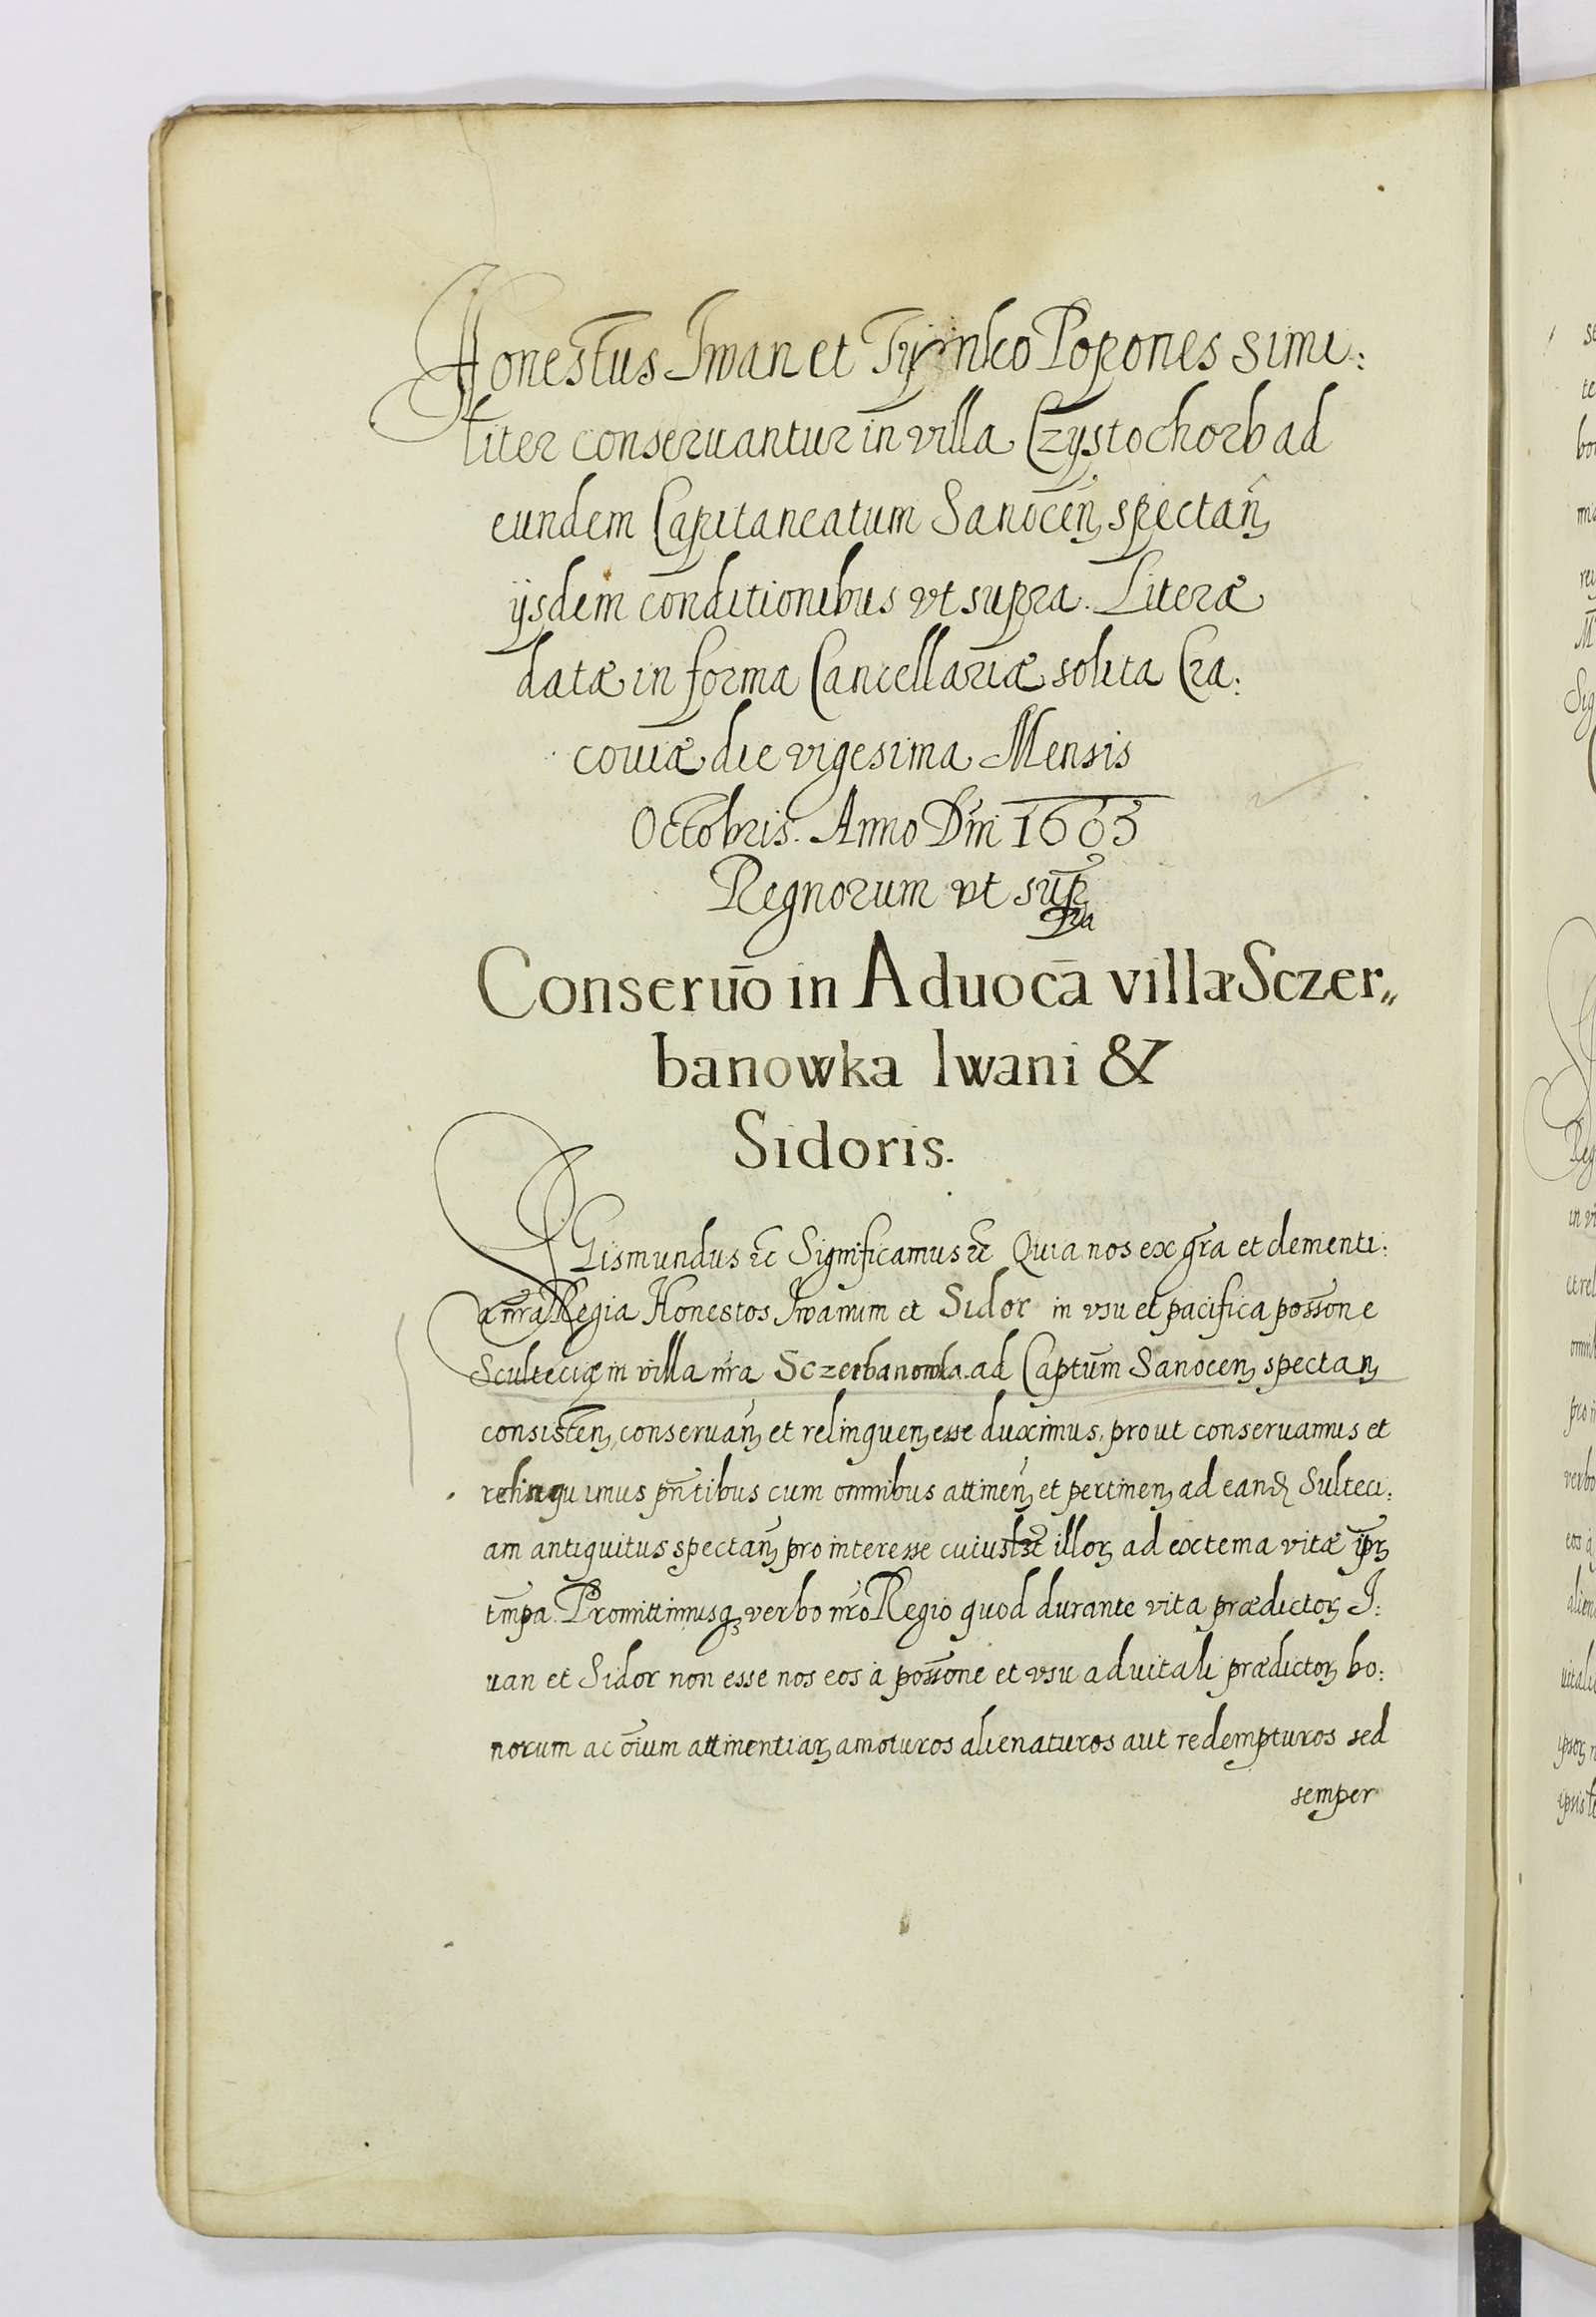 Honestus Iwan et Tymko Popones simi:
liter conseruantur in villa Czystochorb ad
eundem Capitaneatum Sanocen̄ spectan̄
ijsdem conditionibus vt supra. Literæ
datæ in forma Cancellariæ solita Cra:
couiæ die vigesima Mensis
Octobris. Anno Dni 1605
Regnorum vt supra
Conseruō in Aduocā villæ Sczer„
banowka Iwani &
Sidoris.
SGismundus etc Significamus etc Quia nos ex gr̄a et clementi:
a nr̄a Regia Honestos Iwanum et Sidor in vsu et pacifica poss̄one
Scultetiæ in villa nr̄a Sczerbanowka ad Captūm Sanocen̄ spectan̄
consisten̄ conseruan̄ et relinquen̄ esse duximus, prout conseruamus et
relinquimus pn̄tibus cum omnibus attinen̄ et pertinen̄ ad eand̄ Sulteci:
am antiquitus spectan̄ pro interesse cuiuslt illorꝝ ad extema vitæ ip̄rꝝ
tm̄pa. Promittimusqꝫ verbo nr̄o Regio quod durante vita prædictorꝝ I:
uan et Sidor non esse nos eos à poss̄one et vsu aduitali prædictorꝝ bo:
norum ac oīum attinentiarꝝ amoturos alienaturos aut redempturos sed
semper